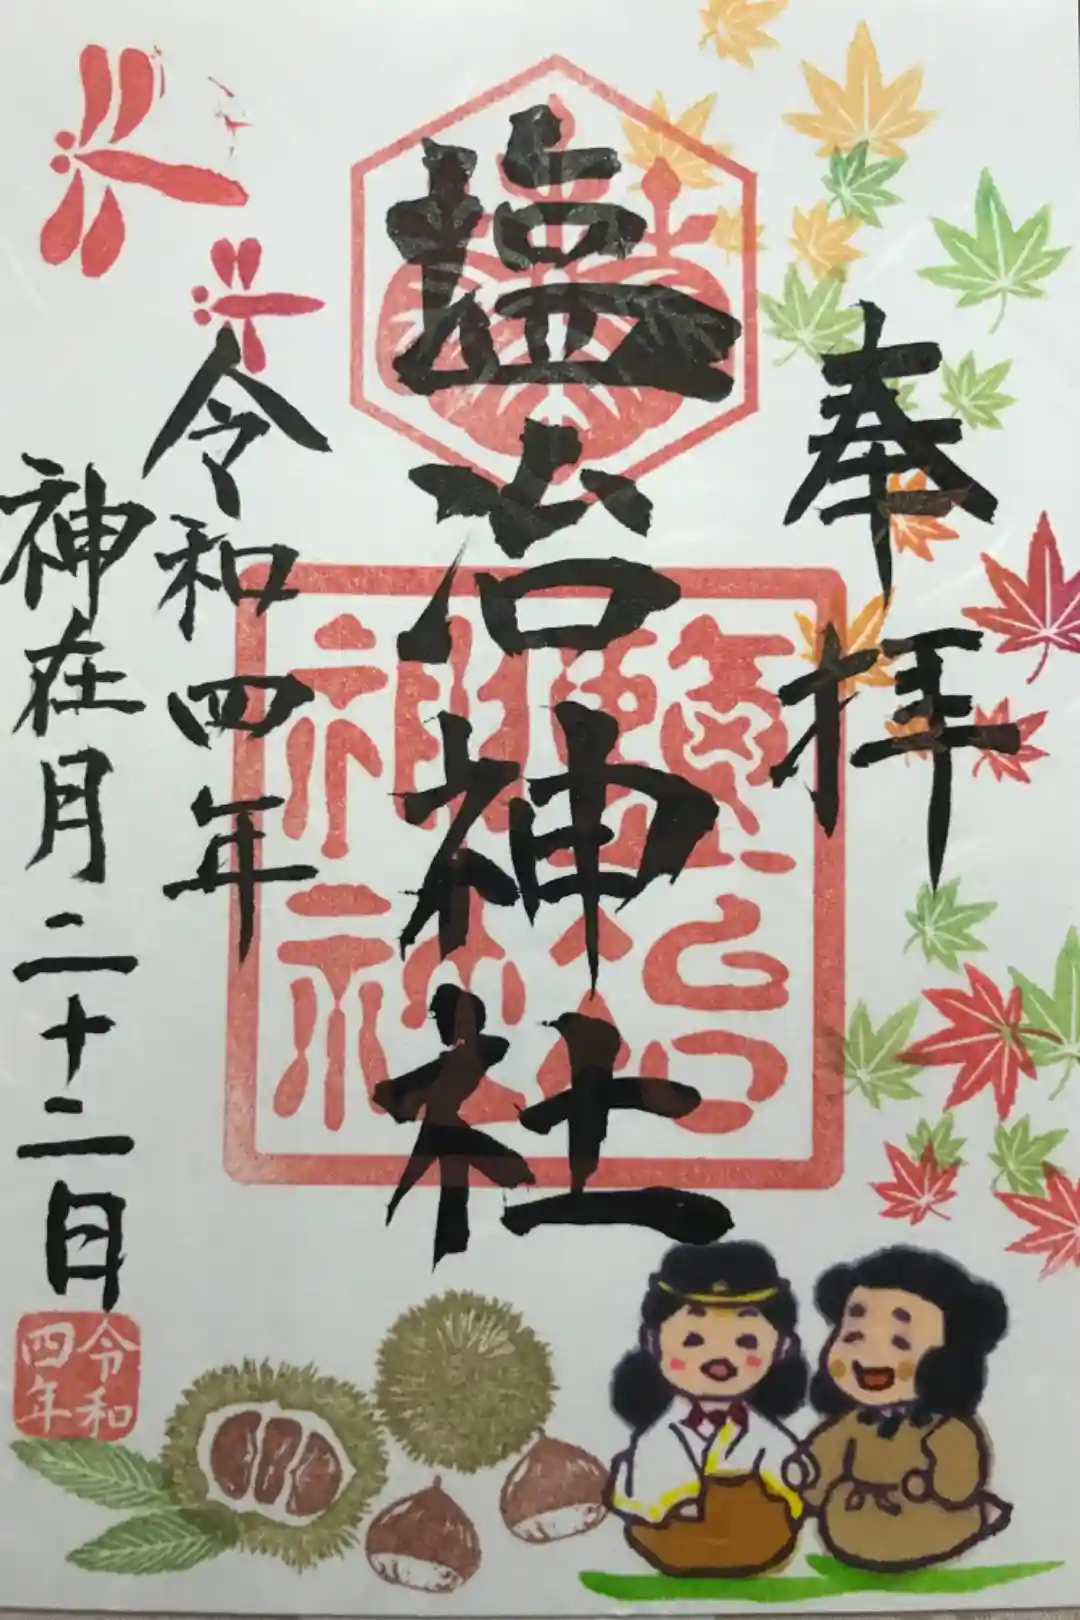 奉拝
塩冶神社
令和四年
神在月二十二日
令和四年